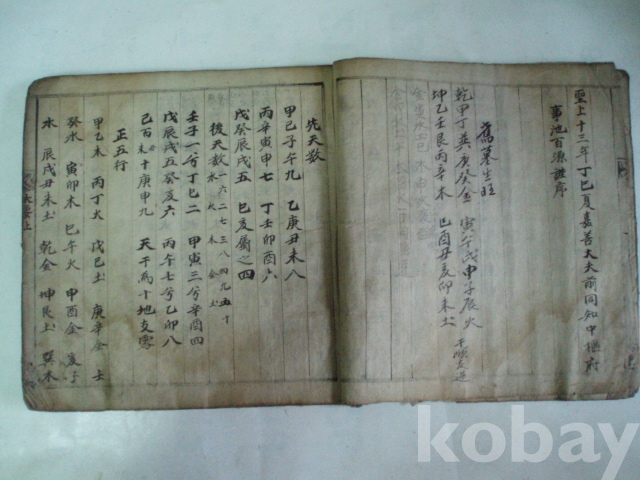 聖上十三年丁巳夏嘉善大夫前同知中樞府
事池百源謹序
舊墓生旺
乾甲丁巽庚癸金 寅午戌甲子辰火
坤乙壬艮丙辛木 巳酉丑亥卯未土
先天数
甲己子午九 乙庚丑未八
丙辛寅申七 丁壬卯酉六
戊癸辰戌五 巳亥屬之四
後天数 一六水 二七火 三八木 四九金 五十土
壬子一兮丁巳二 甲寅三兮辛酉四
戊辰戌五癸亥六 丙午七兮乙卯八
己百未十庚申九 天干爲十地支
正五行
甲乙木 丙丁火 戊己土 庚辛金 壬
癸水 寅卯木 巳午火 申酉金 亥子
水 辰戌丑未土 乾金 坤艮土 巽木
kobay